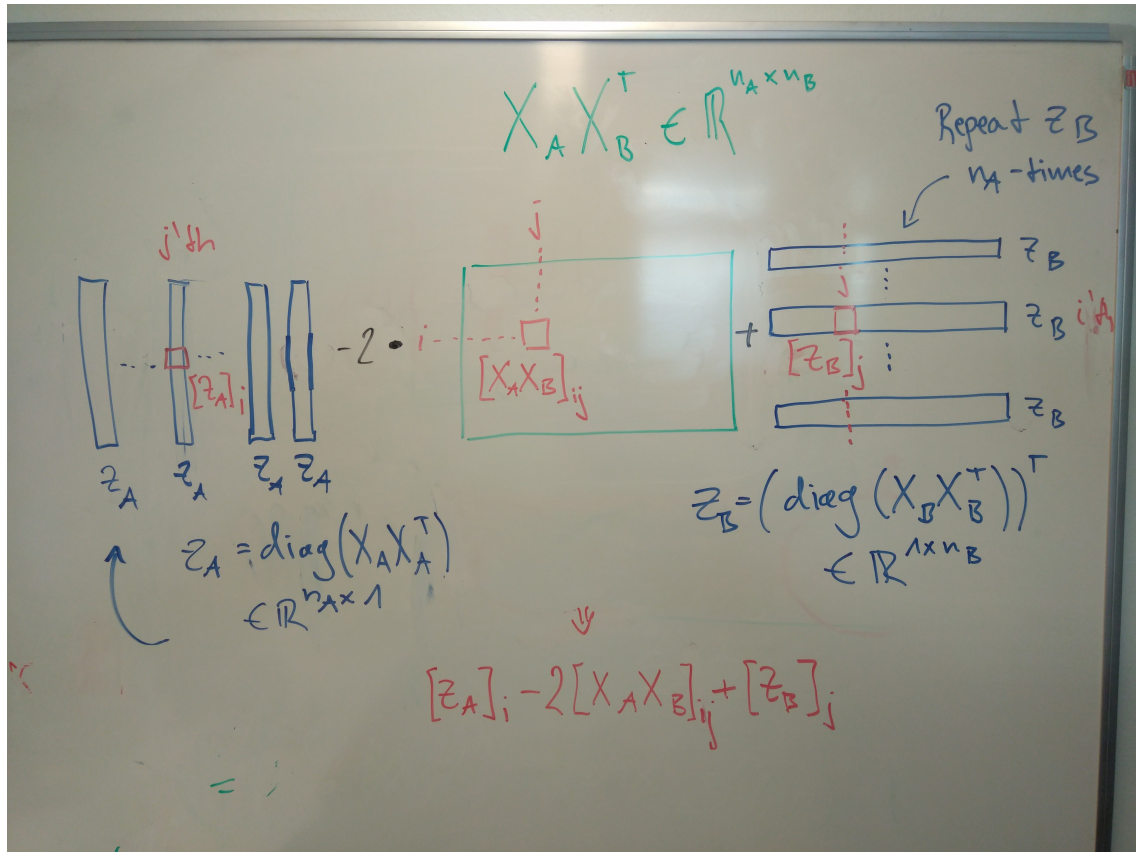 X_A X_B^T ∈ ℝ^{n_A × n_B}
Repeat z_B
n_A -times
j'th
j
z_B
-2 • i
+
z_B i'th
[z_A]_i
[X_A X_B]_{ij}
[z_B]_j
z_B
z_A z_A z_A z_A
z_A = diag(X_A X_A^T)
∈ ℝ^{n_A × 1}
z_B = (diag(X_B X_B^T))^T
∈ ℝ^{1 × n_B}
⇓
[z_A]_i - 2[X_A X_B]_{ij} + [z_B]_j
=